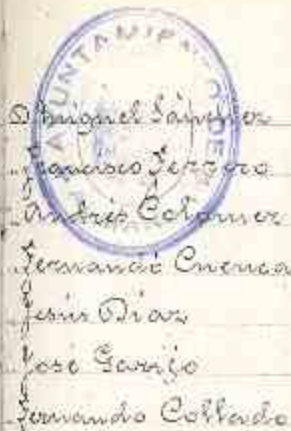 AYUNTAMIENTO DE
D Miguel Sánchez
" Francisco Ferrero
" Andrés Colomer
" Fernando Cuenca
" Jesús Díaz
" José Garijo
" Fernando Collado